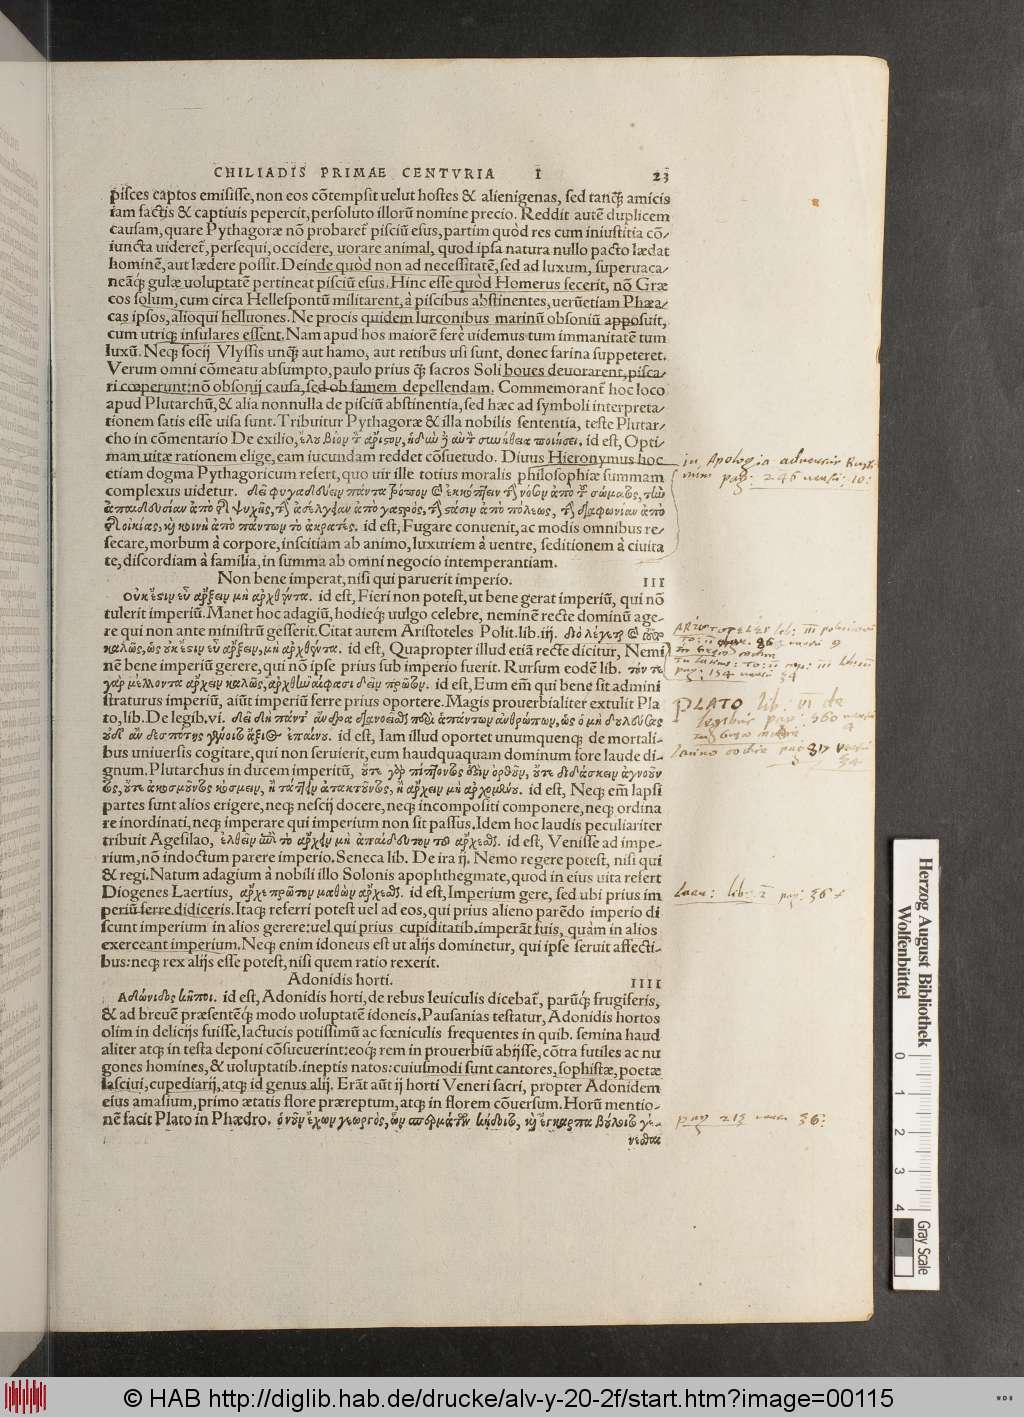 CHILIADIS PRIMAE CENTVRIA I 23
pisces captos emisisse, non eos cõtempsit uelut hostes & alienigenas, sed tanq̃ amicis
iam factis & captiuis pepercit, persoluto illorũ nomine precio. Reddit autẽ duplicem
causam, quare Pythagoræ nõ probaret̃ pisciũ esus, partim quòd res cum iniustitia cõ/
iuncta uideret̃, persequi, occidere, uorare animal, quod ipsa natura nullo pacto lædat
hominẽ, aut lædere possit. Deinde quòd non ad necessitatẽ, sed ad luxum, superuaca/
neãq; gulæ uoluptatẽ pertineat pisciũ esus. Hinc esse quòd Homerus fecerit, nõ Græ
cos solum, cum circa Hellespontũ militarent, à piscibus abstinentes, uerũetiam Phæa/
cas ipsos, alioqui helluones. Ne procis quidem lurconibus marinũ obsoniũ apposuit,
cum utriq; insulares essent. Nam apud hos maiorẽ ferè uidemus tum immanitatẽ tum
luxũ. Neq; socij Vlyssis unq̃ aut hamo, aut retibus usi sunt, donec farina suppeteret.
Verum omni cõmeatu absumpto, paulo prius q̃ sacros Soli boues deuorarent, pisca/
ri cœperunt: nõ obsonij causa, sed ob famem depellendam. Commemorant̃ hoc loco
apud Plutarchũ, & alia nonnulla de pisciũ abstinentia, sed hæc ad symboli interpreta/
tionem satis esse uisa sunt. Tribuitur Pythagoræ & illa nobilis sententia, teste Plutar/
cho in cõmentario De exilio, ἑλοῦ βίον τὸν ἄριστον, ἡδὺν δὲ αὐτὸν συνήθεια ποιήσει. id est, Opti/
mam uitæ rationem elige, eam iucundam reddet cõsuetudo. Diuus Hieronymus hoc
etiam dogma Pythagoricum refert, quo uir ille totius moralis philosophiæ summam
complexus uidetur.
id est, Fugare conuenit, ac modis omnibus re/
secare, morbum à corpore, inscitiam ab animo, luxuriem à uentre, seditionem à ciuita
te, discordiam à familia, in summa ab omni negocio intemperantiam.
Non bene imperat, nisi qui paruerit imperio. III
Οὐκ ἔστιν εὖ ἄρξειν μὴ ἀρχθέντα. id est, Fieri non potest, ut bene gerat imperiũ, qui nõ
tulerit imperiũ. Manet hoc adagiũ, hodieq; uulgo celebre, neminẽ recte dominũ age/
re qui non ante ministrũ gesserit. Citat autem Aristoteles Polit. lib. iij. διὸ λέγεται καὶ τοῦτο
καλῶς, ὡς οὐκ ἔστιν εὖ ἄρξειν, μὴ ἀρχθέντα. id est, Quapropter illud etiã recte dicitur, Nemi
nẽ bene imperiũ gerere, qui nõ ipse prius sub imperio fuerit. Rursum eodẽ lib. τόν τε
γὰρ μέλλοντα ἄρχειν καλῶς, ἀρχθῆναί φασι δεῖν πρῶτον. id est, Eum em̃ qui bene sit admini
straturus imperiũ, aiũt imperiũ ferre prius oportere. Magis prouerbialiter extulit Pla
to, lib. De legib. vi.
id est, Iam illud oportet unumquenq; de mortali/
bus uniuersis cogitare, qui non seruierit, eum haudquaquam dominum fore laude di/
gnum. Plutarchus in ducem imperitũ, οὔτε γὰρ πίπτοντος ἐστὶν ὀρθοῦν, οὔτε διδάσκειν ἀγνοοῦν
τος, οὔτε ἀκοσμοῦντος κοσμεῖν, ἢ τάττειν ἀτακτοῦντος, ἢ ἄρχειν μὴ ἀρχομένου. id est, Neq; em̃ lapsi
partes sunt alios erigere, neq; nescij docere, neq; incompositi componere, neq; ordina
re inordinati, neq; imperare qui imperium non sit passus. Idem hoc laudis peculiariter
tribuit Agesilao, ἐλθεῖν ἐπὶ τὸ ἄρχειν μὴ ἀπαίδευτον τοῦ ἄρχεσθαι. id est, Venisse ad impe/
rium, nõ indoctum parere imperio. Seneca lib. De ira ij. Nemo regere potest, nisi qui
& regi. Natum adagium à nobili illo Solonis apophthegmate, quod in eius uita refert
Diogenes Laertius, ἄρχε πρῶτον μαθὼν ἄρχεσθαι. id est, Imperium gere, sed ubi prius im
periũ ferre didiceris. Itaq; referri potest uel ad eos, qui prius alieno parẽdo imperio di
scunt imperium in alios gerere: uel qui prius cupiditatib. imperãt suis, quàm in alios
exerceant imperium. Neq; enim idoneus est ut alijs dominetur, qui ipse seruit affecti/
bus: neq; rex alijs esse potest, nisi quem ratio rexerit.
Adonidis horti. IIII
Ἀδώνιδος κῆποι. id est, Adonidis horti, de rebus leuiculis dicebat̃, parũq; frugiferis,
& ad breuẽ præsentẽq; modo uoluptatẽ idoneis. Pausanias testatur, Adonidis hortos
olim in delicijs fuisse, lactucis potissimũ ac fœniculis frequentes in quib. semina haud
aliter atq; in testa deponi cõsueuerint: eoq; rem in prouerbiũ abijsse, cõtra futiles ac nu
gones homines, & uoluptatib. ineptis natos: cuiusmodi sunt cantores, sophistæ, poetæ
lasciui, cupediarij, atq; id genus alij. Erãt aũt ij horti Veneri sacri, propter Adonidem
eius amasium, primo ætatis flore præreptum, atq; in florem cõuersum. Horũ mentio/
nẽ facit Plato in Phædro. ὁ νοῦν ἔχων γεωργὸς, ὧν σπερμάτων κήδοιτο, καὶ ἔγκαρπα βούλοιτο γε/
νέσθαι
in Apologia aduersus Ruffi
num pag: 246 uersu: 10:
PLATO lib: VI de
legibus pag: 360
Laer: lib: 2 pag: 36
pag 213 uersu 36:
Herzog August Bibliothek
Wolfenbüttel
0 1 2 3 4
Gray Scale
© HAB http://diglib.hab.de/drucke/alv-y-20-2f/start.htm?image=00115